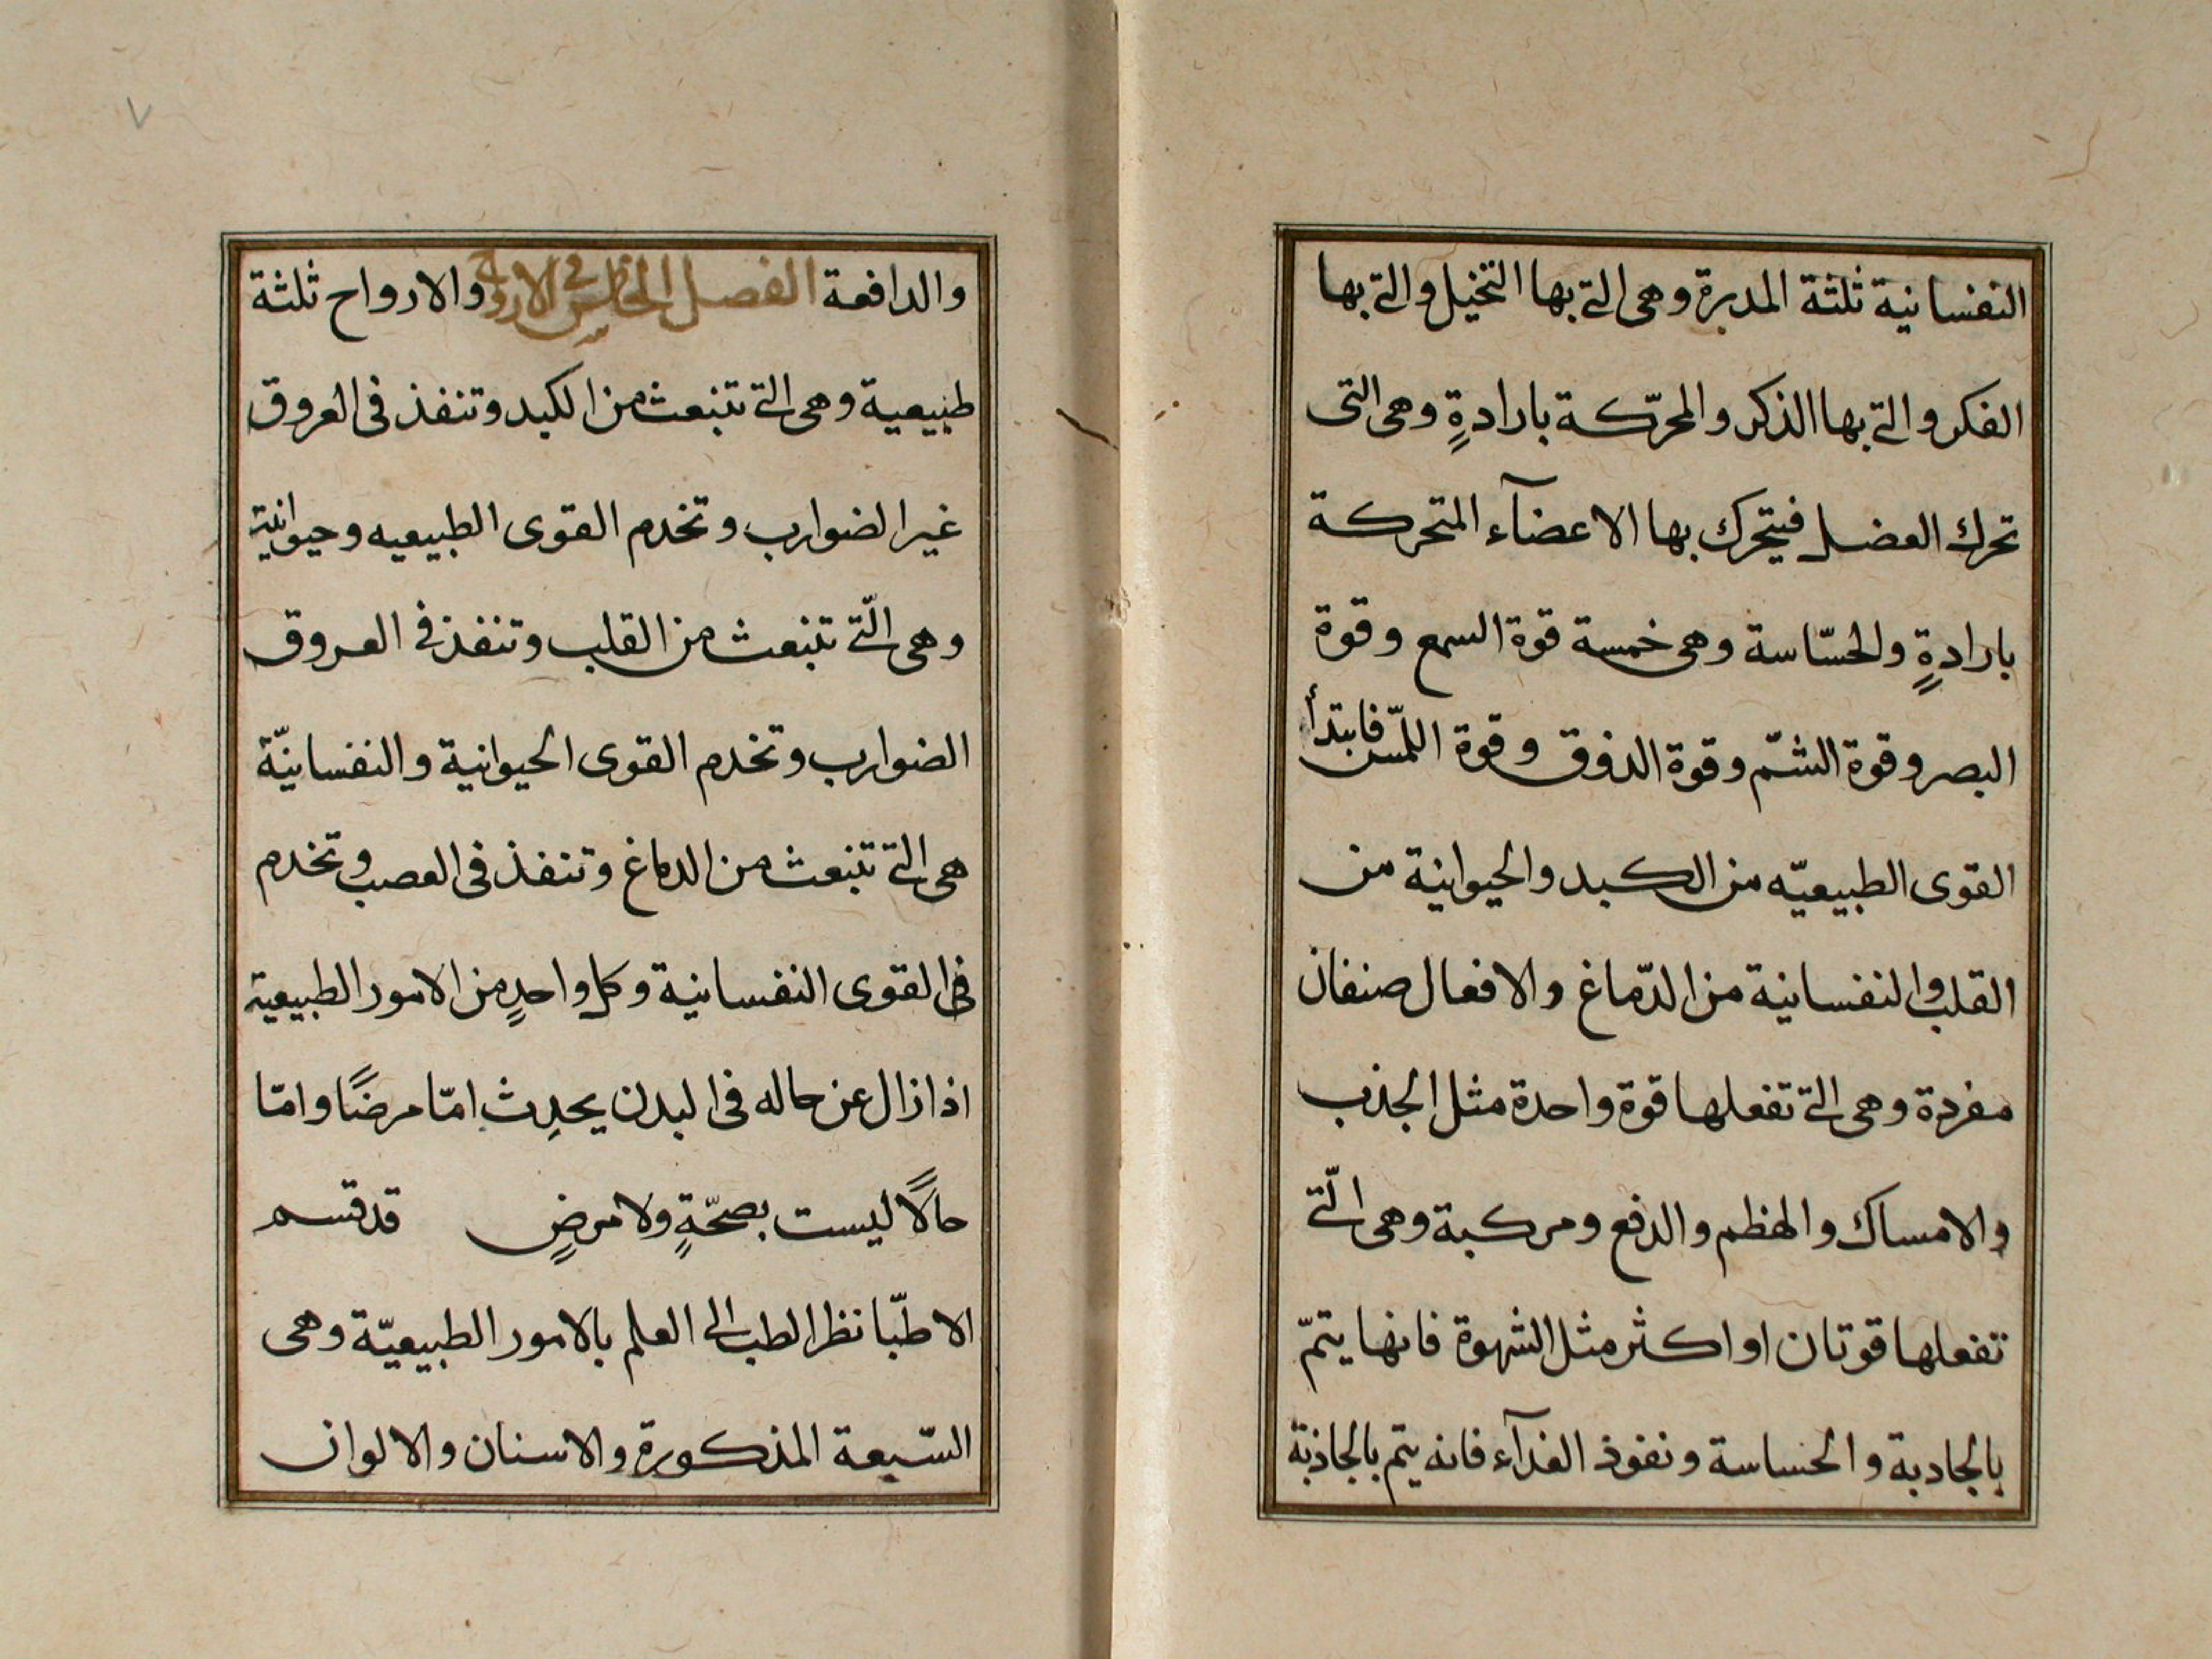 النفسانية ثلثة المدبرة وهى التى بها التخيل والتى بها
الفكر والتى بها الذكر والمحرّكة بارادةٍ وهى التى
تحرك العضل فيتحرك بها الاعضآء المتحركة
بارادةٍ والحسّاسة وهى خمسة قوة السمع وقوة
البصر وقوة الشمّ وقوة الذوق وقوة اللمس فابتدأ
القوى الطبيعيّه من الكبد والحيوانية من
القلب والنفسانية من الدّماغ والافعال صنفان
مفردة وهى التى تفعلها قوة واحدة مثل الجذب
والامساك والهظم والدفع ومركبة وهى الّتى
تفعلها قوتان او اكثر مثل الشهوة فانها يتمّ
بالجاذبة والحساسة ونفوذ الغذآء فانه يتم بالجاذبة
والدافعة الفصل الخامس فى الارواح والارواح ثلثة
طبيعية وهى التى تنبعث من الكبد وتنفذ فى العروق
غير الضوارب وتخدم القوى الطبيعيه وحيوانية
وهى الّتى تنبعث من القلب وتنفذ فى العروق
الضوارب وتخدم القوى الحيوانية والنفسانيّة
هى التى تنبعث من الدماغ وتنفذ فى العصب وتخدم
فى القوى النفسانية وكل واحدٍ من الامور الطبيعية
اذا زال عن حاله فى البدن يحدِث امّا مرضًا وامّا
حالًا ليست بصحّةٍ ولا مرضٍ قد قسم
الاطبّا نظر الطب الى العلم بالامور الطبيعيّة وهى
السّبعة المذكورة والاسنان والالوان
٧